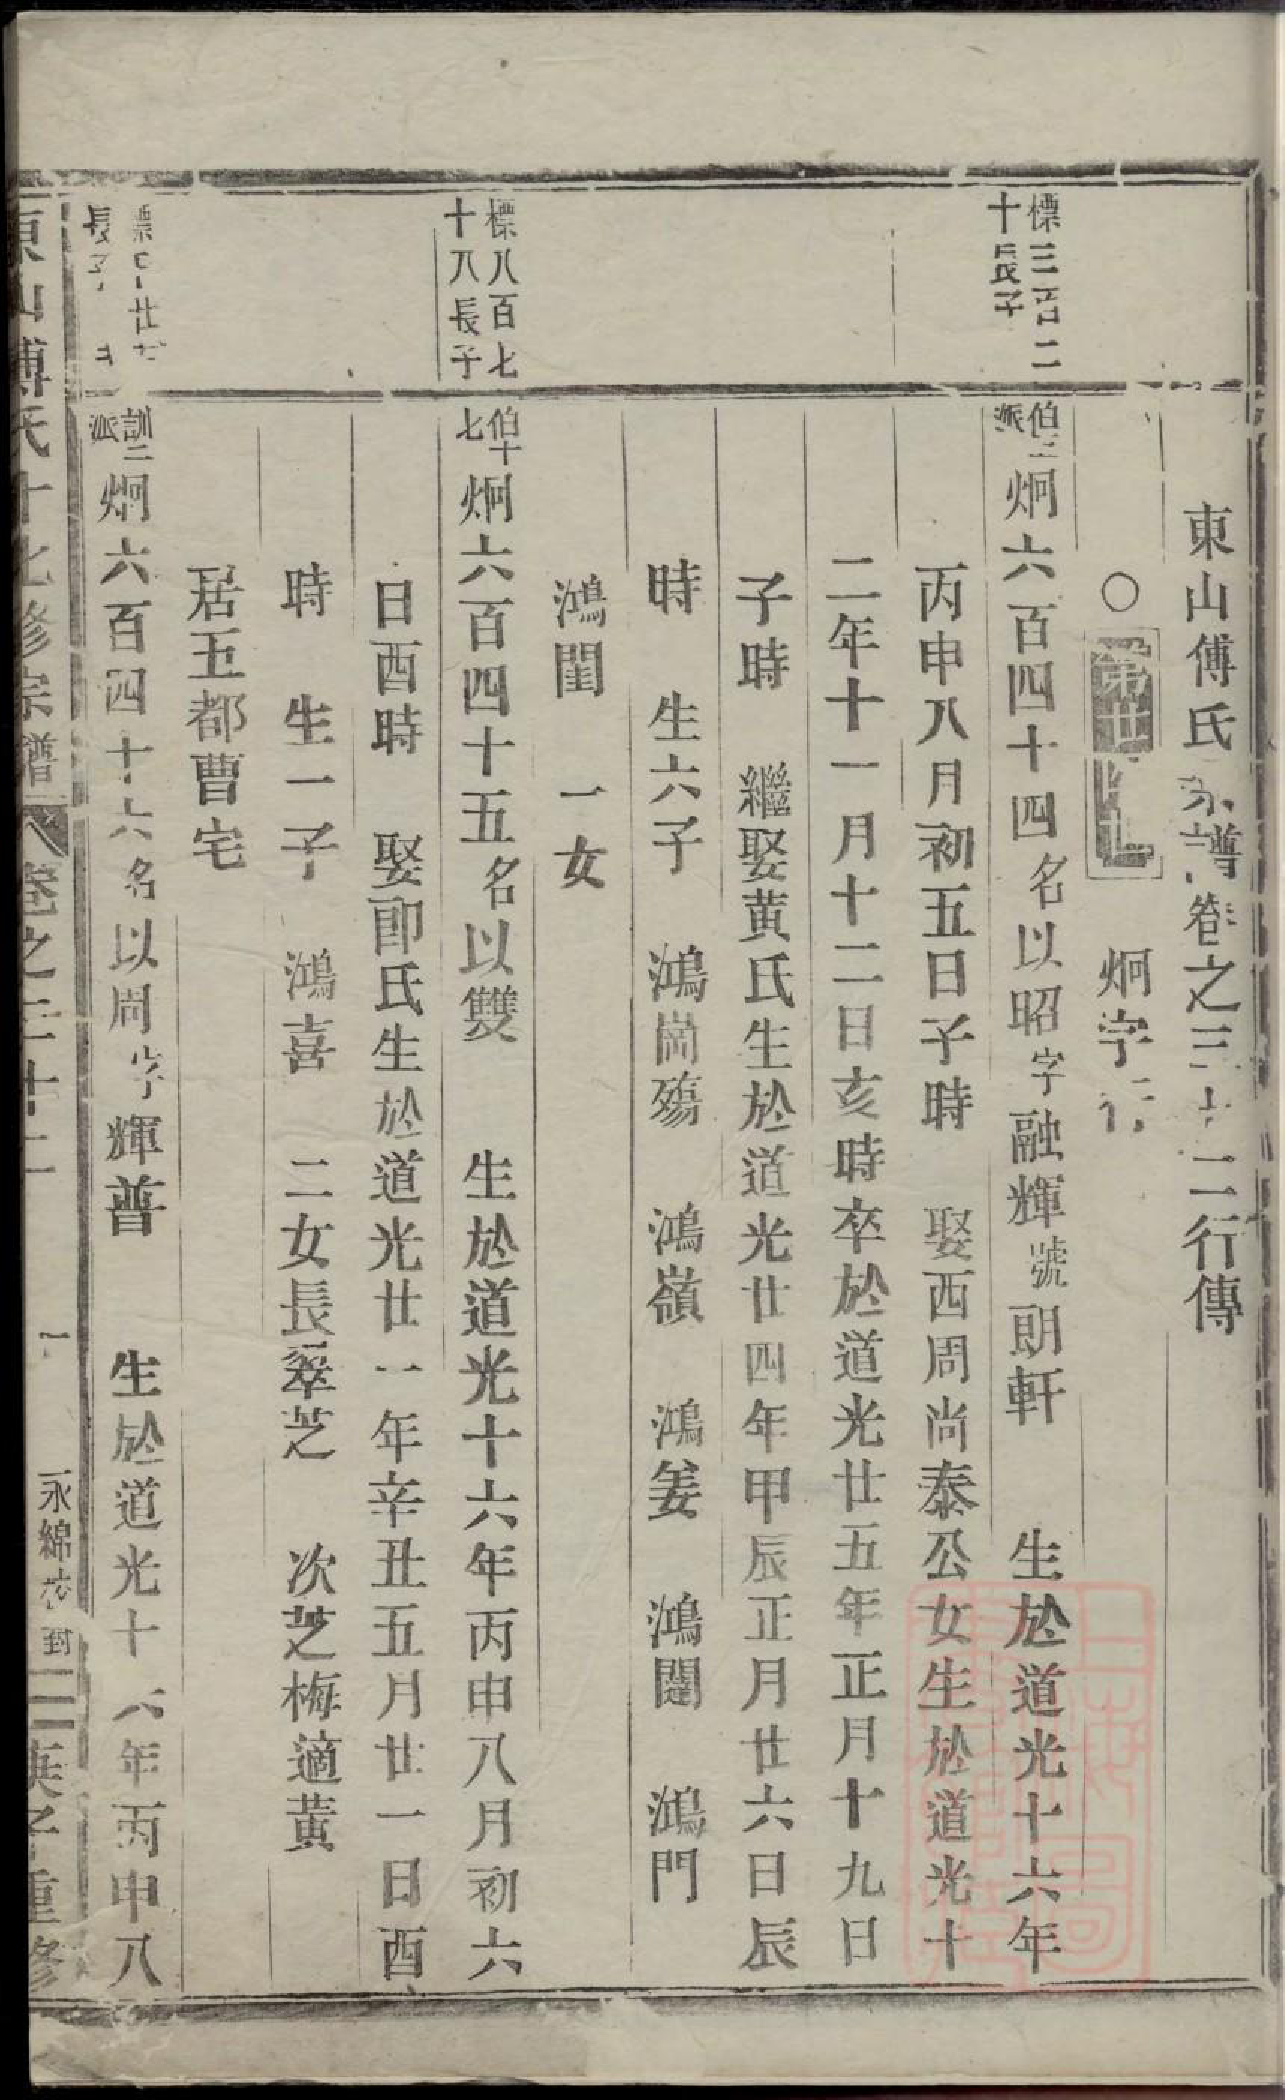 東山傅氏宗譜卷之三十二行傳
○ 炯字行
標三百二
十長子
伯三
派
炯六百四十四名以昭字融輝號朗軒 生於道光十六年
丙申八月初五日子時 娶西周尚泰公女生於道光十
二年十一月十二日亥時卒於道光廿五年正月十九日
子時 繼娶黃氏生於道光廿四年甲辰正月廿六日辰
時 生六子 鴻崗殤 鴻嶺 鴻姜 鴻闥 鴻門
鴻閨 一女
標八百七
十八長子
伯十
七
炯六百四十五名以雙 生於道光十六年丙申八月初六
日酉時 娶郎氏生於道光廿一年辛丑五月廿一日酉
時 生一子 鴻喜 二女長翠芝 次芝梅適黃
居五都曹宅
長子
訓二
派
炯六百四十六名以周字輝普 生於道光十六年丙申八
東山傅氏十七修宗譜 卷之三十二 一 永綿校對 重修